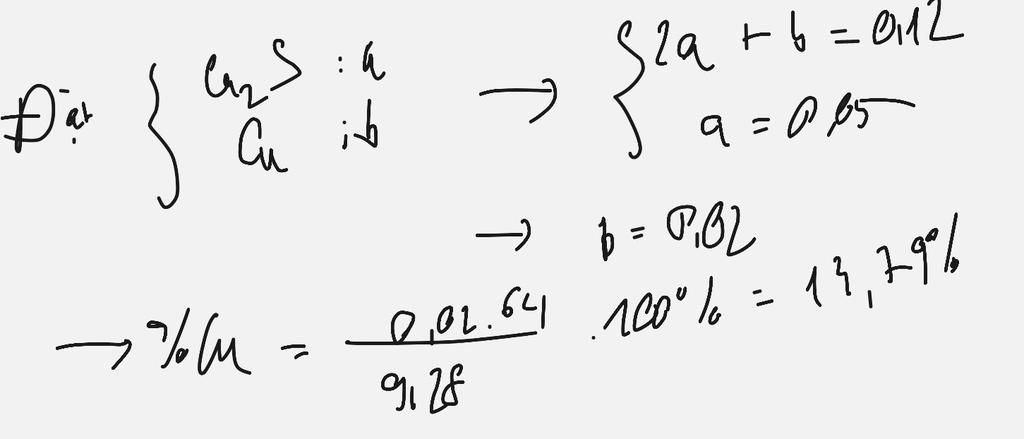 Đặt { Cu₂S : a → { 2a + b = 0,12
Cu : b a = 0,05
→ b = 0,02
→ %Cu = 0,02.64 / 9,28 .100% = 13,79%